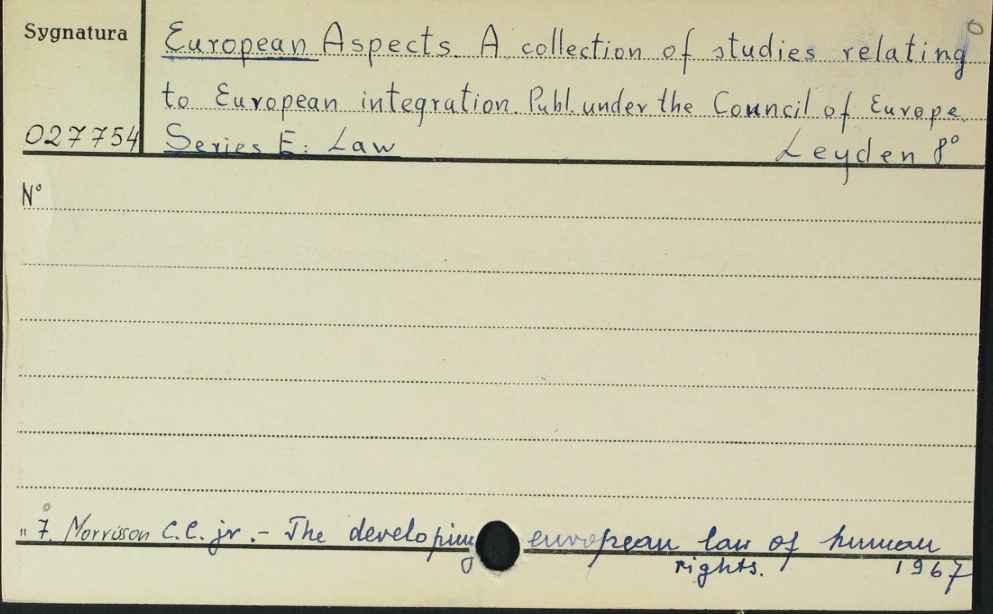 Sygnatura
European Aspects. A collection of studies relating
to European integration. Publ. under the Council of Europe.
027754 Series E: Law Leyden 8°
N°
" 7. Morrison C.C. jr. - The developing european law of human
rights. 1967